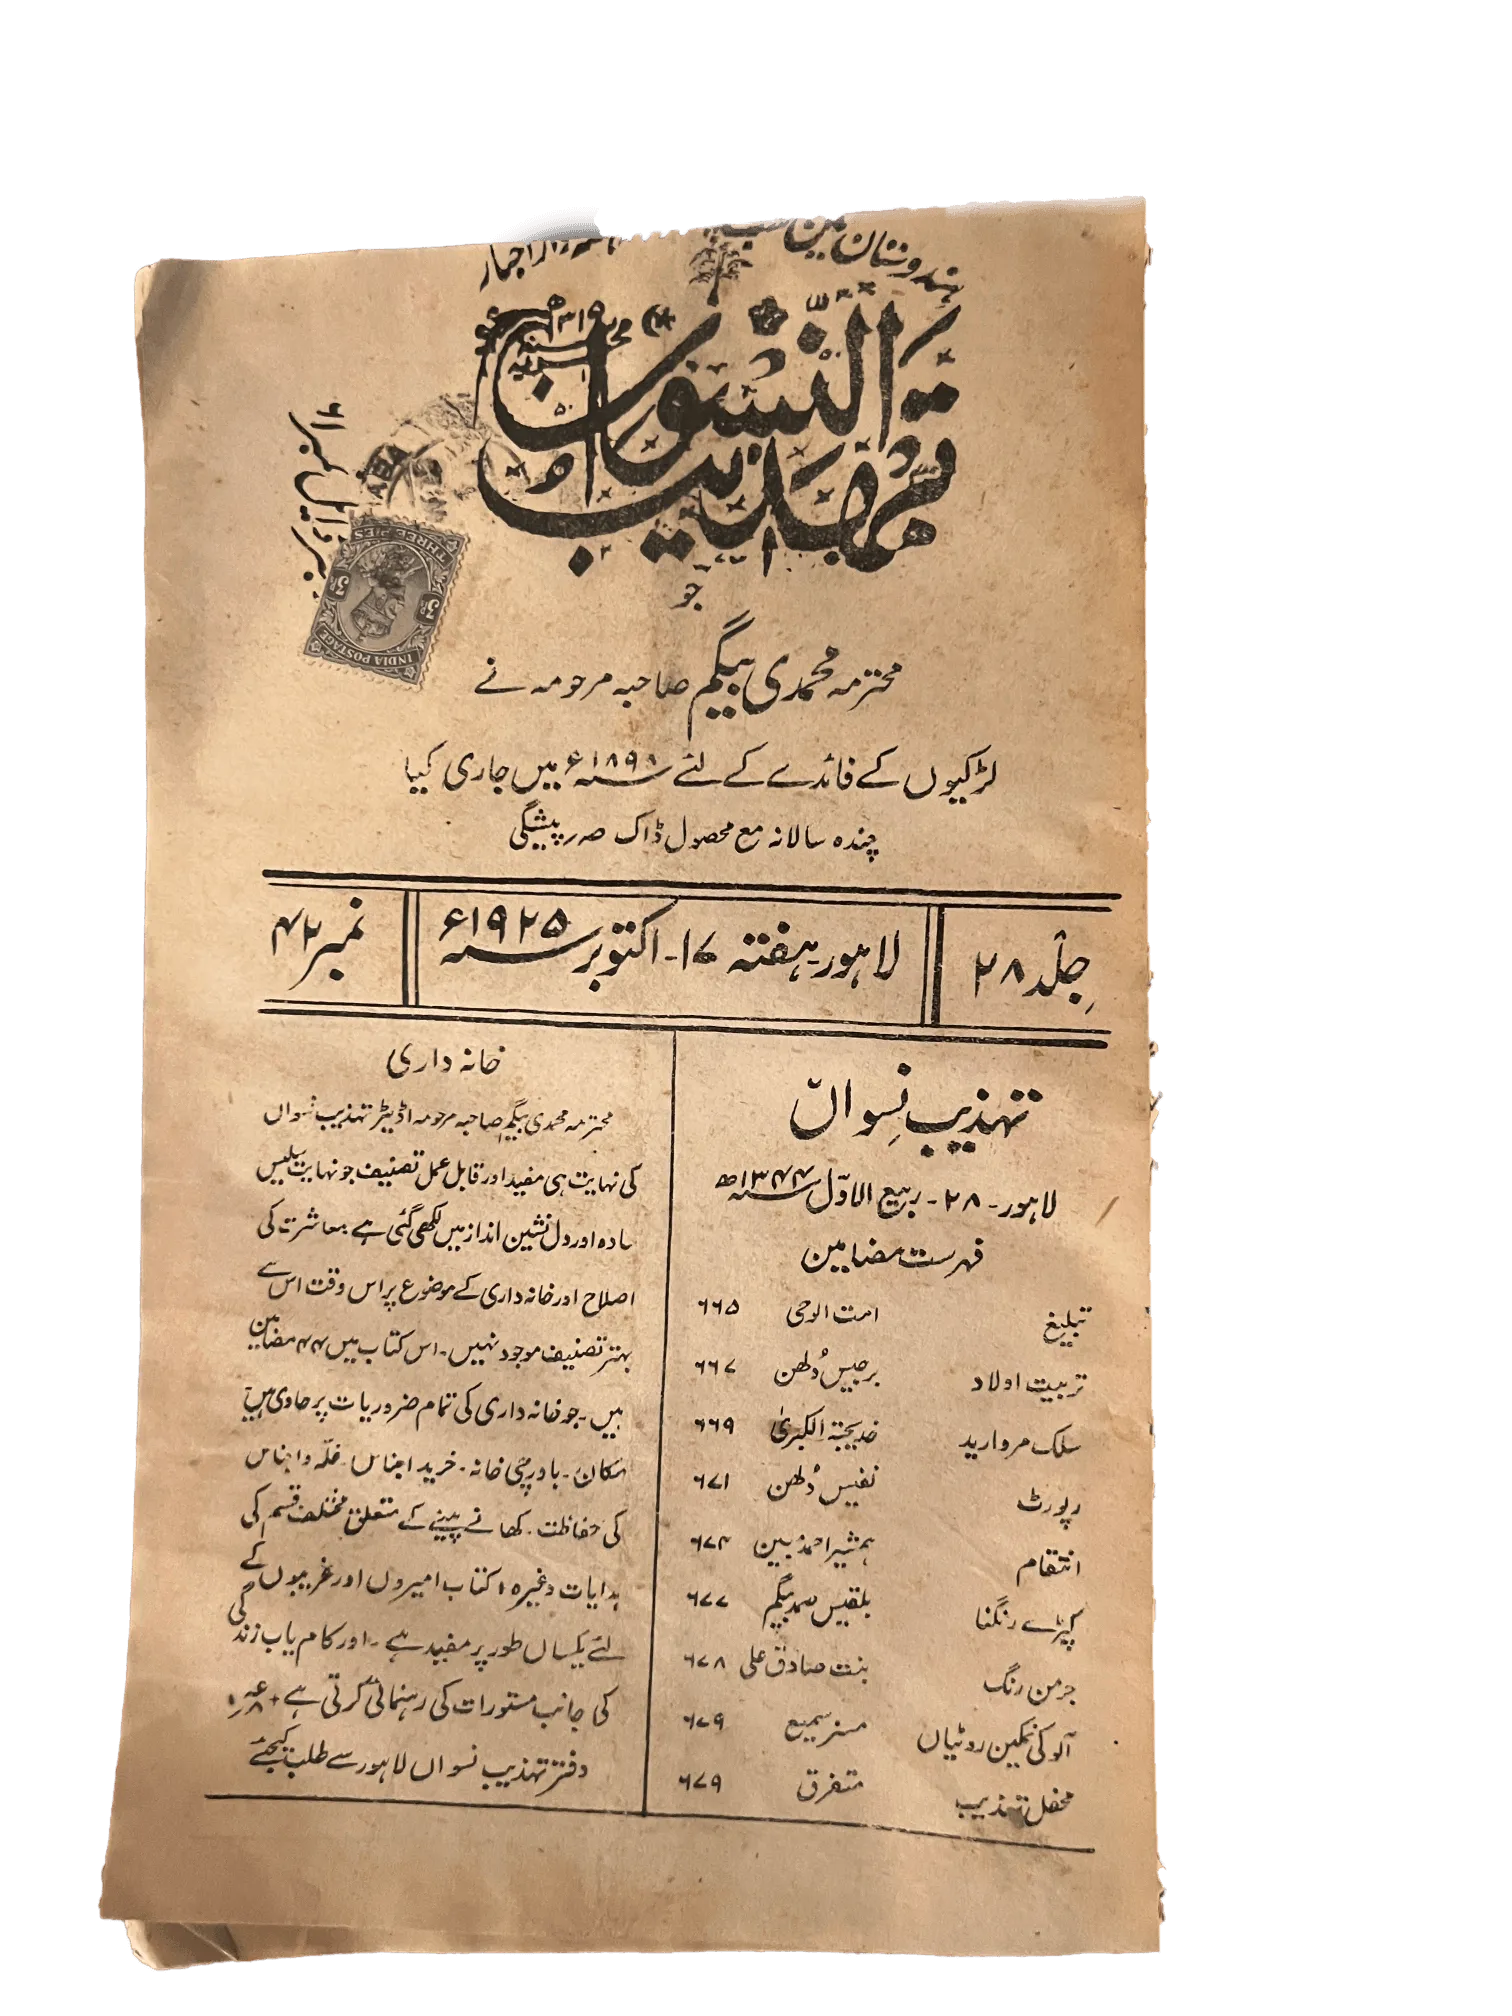 ہندوستان میں سب
تہذیب النسواں
جو
محترمہ محمدی بیگم صاحبہ مرحومہ نے
لڑکیوں کے فائدے کے لئے سنہ ۱۸۹۸ء میں جاری کیا
چندہ سالانہ مع محصول ڈاک صہ پیشگی
INDIA POSTAGE
THREE PIES
جلد ۲۸
لاہور ہفتہ ۱۷ - اکتوبر سنہ ۱۹۲۵ء
نمبر ۴۲
تہذیب نسواں
لاہور - ۲۸ - ربیع الاوّل سنہ ۱۳۴۴ھ
فہرست مضامین
تبلیغ امت الوحی ۶۶۵
تربیت اولاد برجیس دُلھن ۶۶۷
سلک مروارید خدیجۃ الکبریٰ ۶۶۹
رپورٹ نفیس دُلھن ۶۷۱
انتقام ہمشیر احمد مبین ۶۷۴
کپڑے رنگنا بلقیس بیگم ۶۷۷
جرمن رنگ بنت صادق علی ۶۷۸
آلو کی نمکین روٹیاں مسز سمیع ۶۷۹
محفل تہذیب متفرق ۶۷۹
خانہ داری
محترمہ محمدی بیگم صاحبہ مرحومہ اڈیٹر تہذیب نسواں
کی نہایت ہی مفید اور قابل عمل تصنیف جو نہایت سلیس
سادہ اور دل نشین انداز میں لکھی گئی ہے معاشرت کی
اصلاح اور خانہ داری کے موضوع پر اس وقت اس سے
بہتر تصنیف موجود نہیں - اس کتاب میں ۴۴ مضامین
ہیں - جو خانہ داری کی تمام ضروریات پر حاوی ہیں
مکان - باورچی خانہ - خرید اجناس - غلّہ و اجناس
کی حفاظت - کھانے پینے کے متعلق مختلف قسم کی
ہدایات وغیرہ کتاب امیروں اور غریبوں کے
لئے یکساں طور پر مفید ہے - اور کام یاب زندگی
کی جانب مستورات کی رہنمائی کرتی ہے
دفتر تہذیب نسواں لاہور سے طلب کیجئے